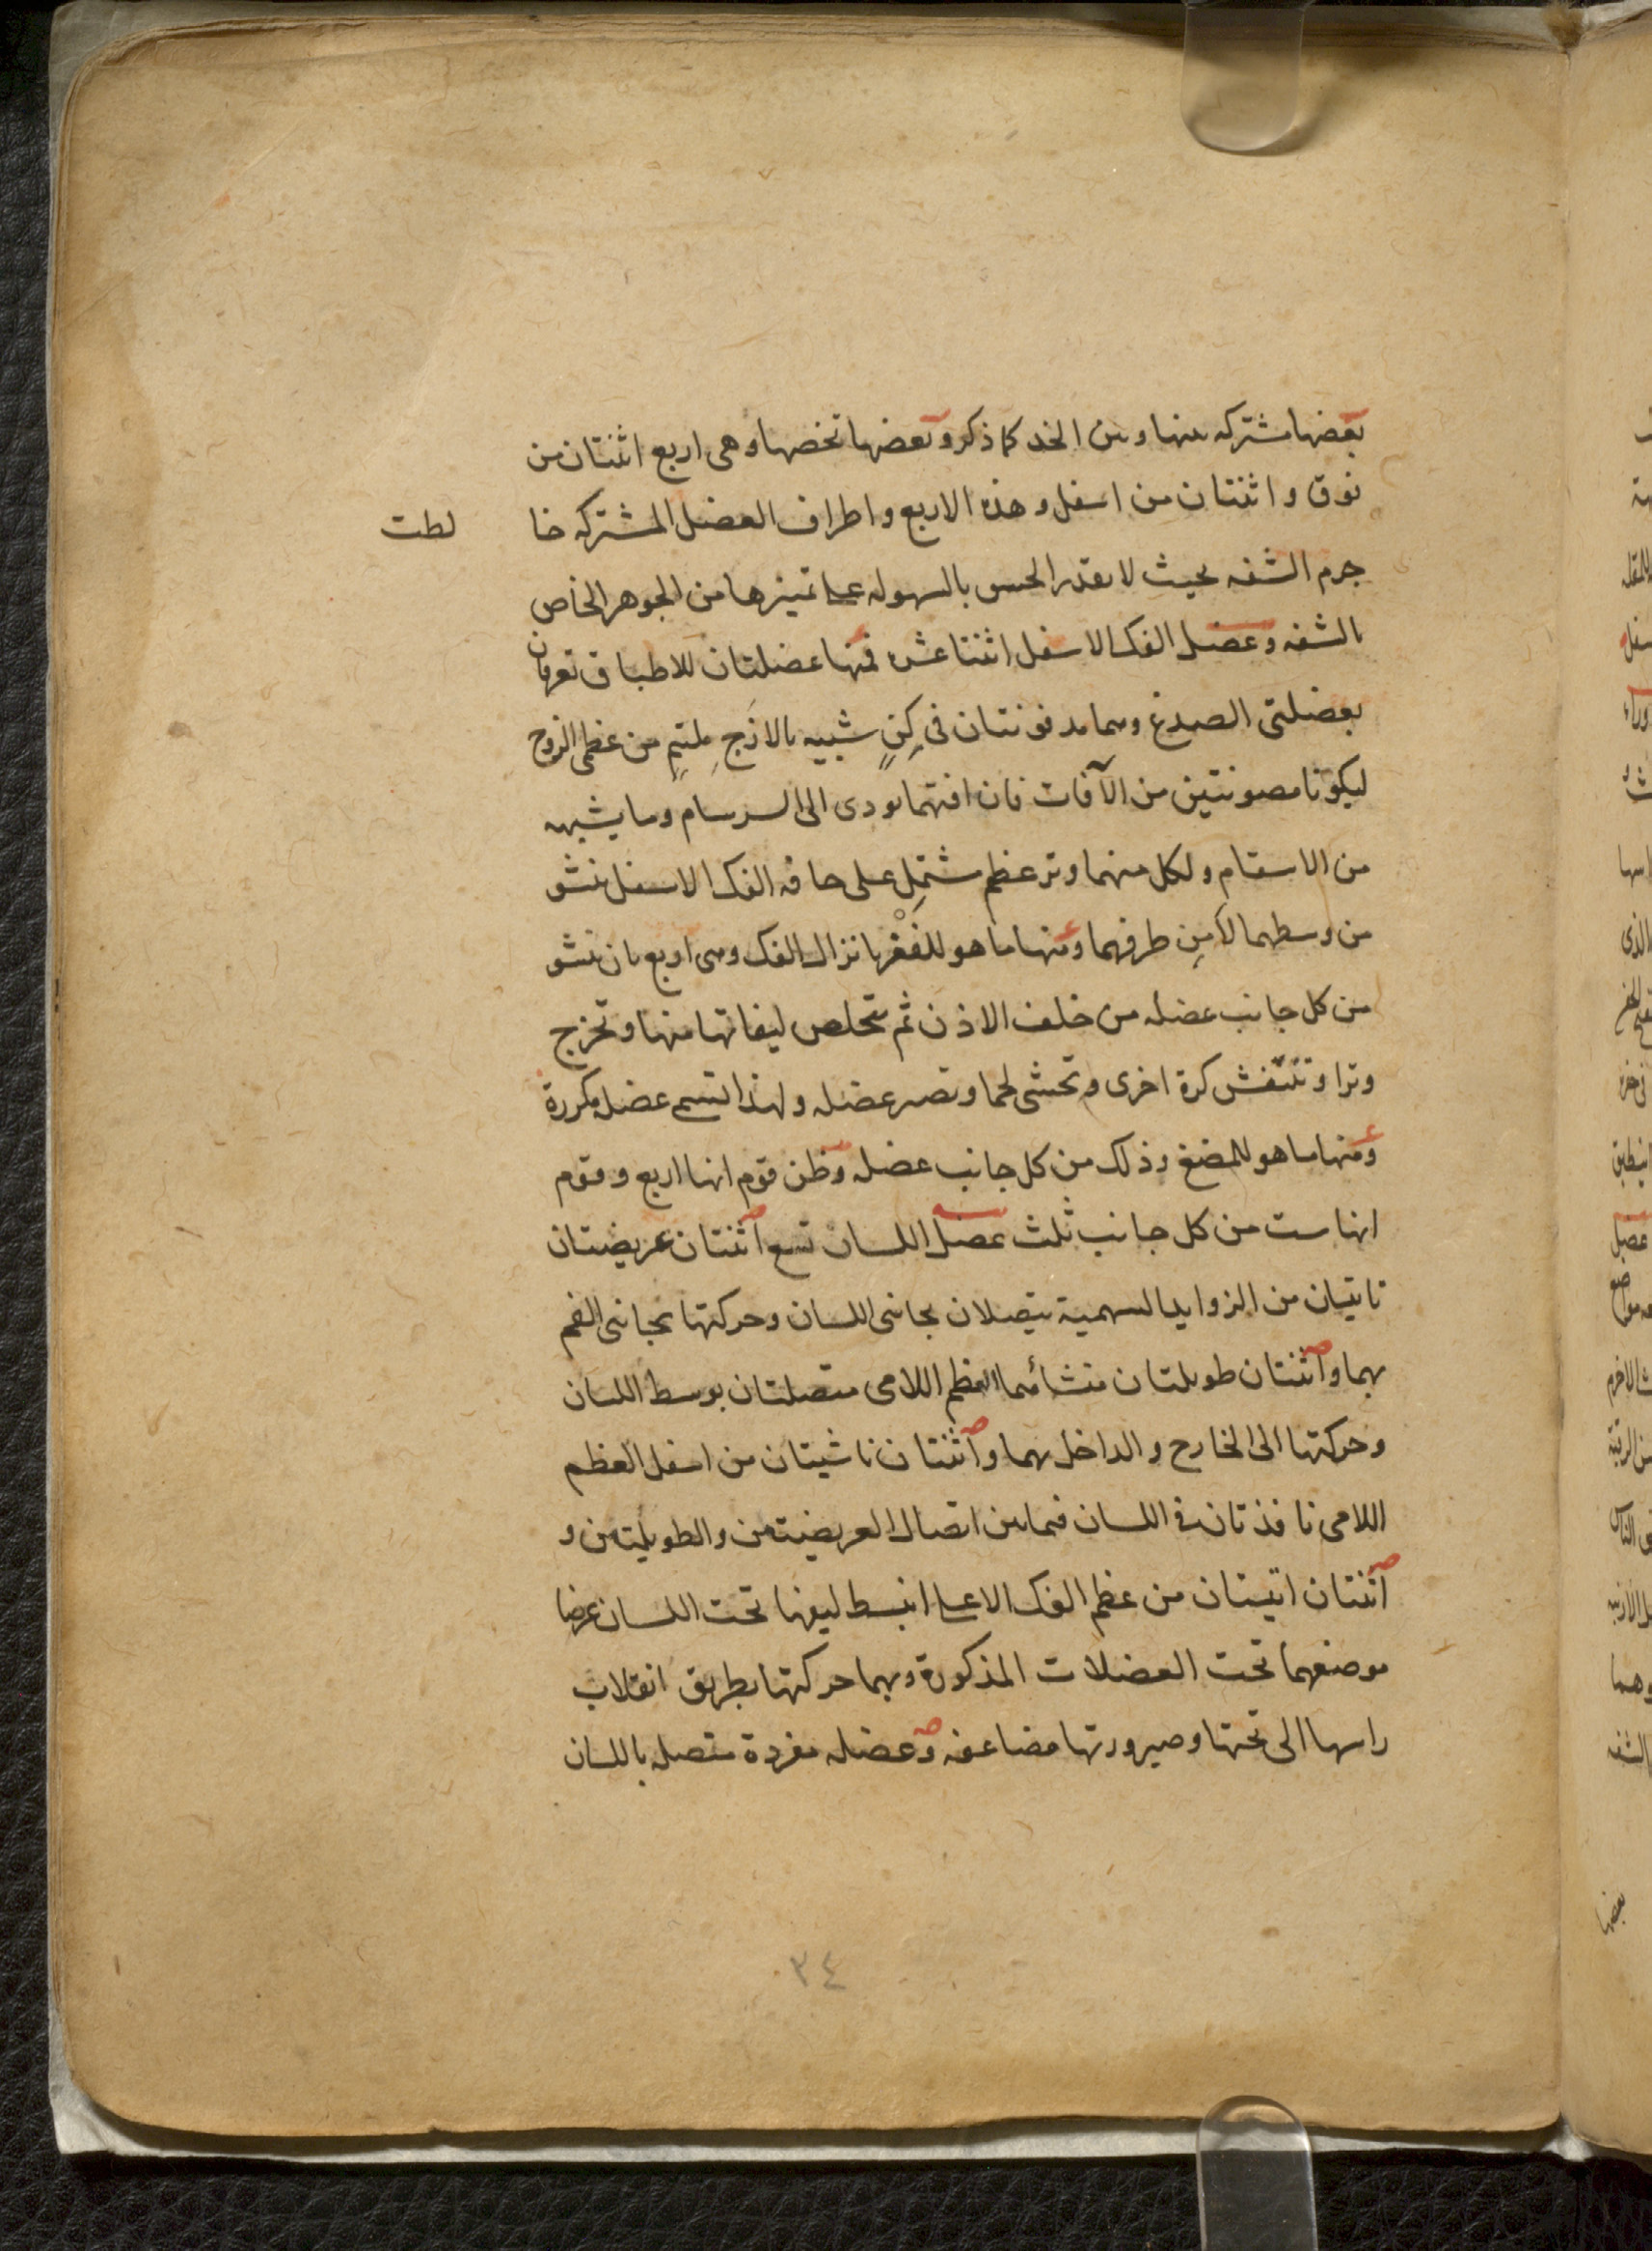 بعضها مشتركه بينها وبين الخد كما ذكر وبعضها تخصها وهى اربع اثنتان من
فوق واثنتان من اسفل وهذه الاربع واطراف العضل المشتركه خا لطت
جرم الشفه بحيث لا يقدر الحس بالسهوله على تميزها من الجوهر الخاص
بالشفه وعضل الفك الاسفل اثنتا عشره فمنها عضلتان للاطباق تعرفان
بعضلتى الصدغ وهما مدفونتان فى كِنٍ شبيه بالازَجِ ملتئمٍ من عظمى الزوج
ليكونا مصونتين من الآفات فان افتهما تودى الى السرسام وما يشبهه
من الاسقام ولكل منهما وتر عظم مشتمل على حافه الفك الاسفل ينشو
من وسطهما لا من طرفهما ومنها ما هو للفَغْر بانزال الفك وهى اربع بان ينشو
من كل جانب عضله من خلف الاذن ثم يتخلص ليفاتها منها وتخرج
وترا وتتنفش كرة اخرى وتحشى لحما وتصير عضله ولهذا تسمى عضل مكررة
ومنها ما هو للمضغ وذلك من كل جانب عضله وظن قوم انها اربع وقوم
انها ست من كل جانب ثلث عضل اللسان تسع اثنتان عريضتان
تاتيان من الزوايد السهمية يتصلان بجانبى اللسان وحركتها بجانبى الفم
بهما واثنتان طويلتان منشائهما العظم اللامى متصلتان بوسط اللسان
وحركتها الى الخارج والداخل بهما واثنتان ناشيتان من اسفل العظم
اللامى نافذتان فى اللسان فيما بين اتصال العريضتين والطويلتين و
اثنتان اتيتان من عظم الفك الاعلى انبسط ليفها تحت اللسان عرضا
موضعهما تحت العضلات المذكورة وبهما حركتها بطريق انقلاب
راسها الى تحتها وصيرورتها مضاعفه وعضله مفردة متصله باللسان
٣٤